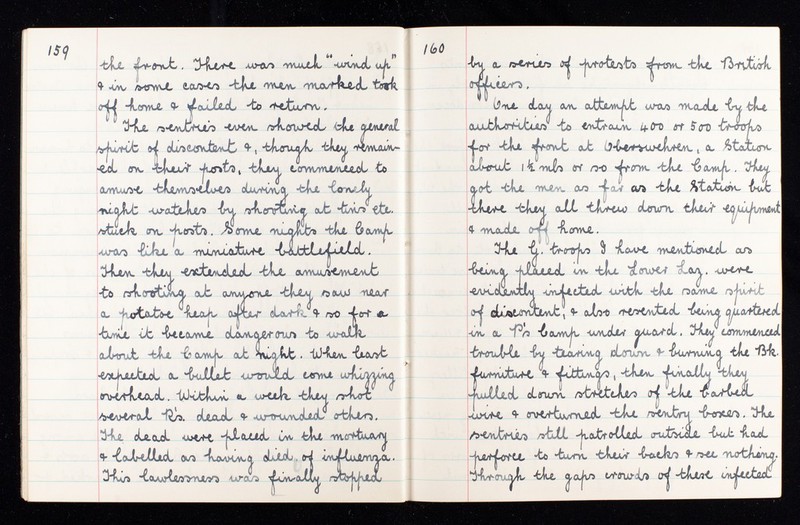 159
the front. There was much "wind up"
& in some cases the men marked took
off home & failed to return.
The sentries even showed the general
spirit of discontent &, though they remain-
ed on their posts, they commenced to
amuse themselves during the lonely
night watches by shooting at tins etc.
stuck on posts. Some nights the Camp
was like a miniature battlefield.
Then they extended the amusement
to shooting at anyone they saw near
a potatoe heap after dark & so for a
time it became dangerous to walk
about the Camp at night. When least
expected a bullet would come whizzing
overhead. Within a week they shot
several R's. dead & wounded others.
The dead were placed in the mortuary
& labelled as having died of influenza.
This lawlessness was finally stopped
160
by a series of protests from the British
officers.
One day an attempt was made by the
authorities to entrain 400 or 500 troops
for the front at Oberswehren, a Station
about 1½ mls or so from the Camp. They
got the men as far as the Station but
there they all threw down their equipment
& made off home.
The G. troops I have mentioned as
being placed in the Lower Laz. were
evidently infected with the same spirit
of discontent, & also resented being quartered
in a P's Camp under guard. They commenced
trouble by tearing down & burning the Bk.
furniture & fittings, then finally they
pulled down stretches of the barbed
wire & overturned the sentry boxes. The
sentries still patrolled outside but had
perforce to turn their backs & see nothing.
Through the gaps crowds of these infected